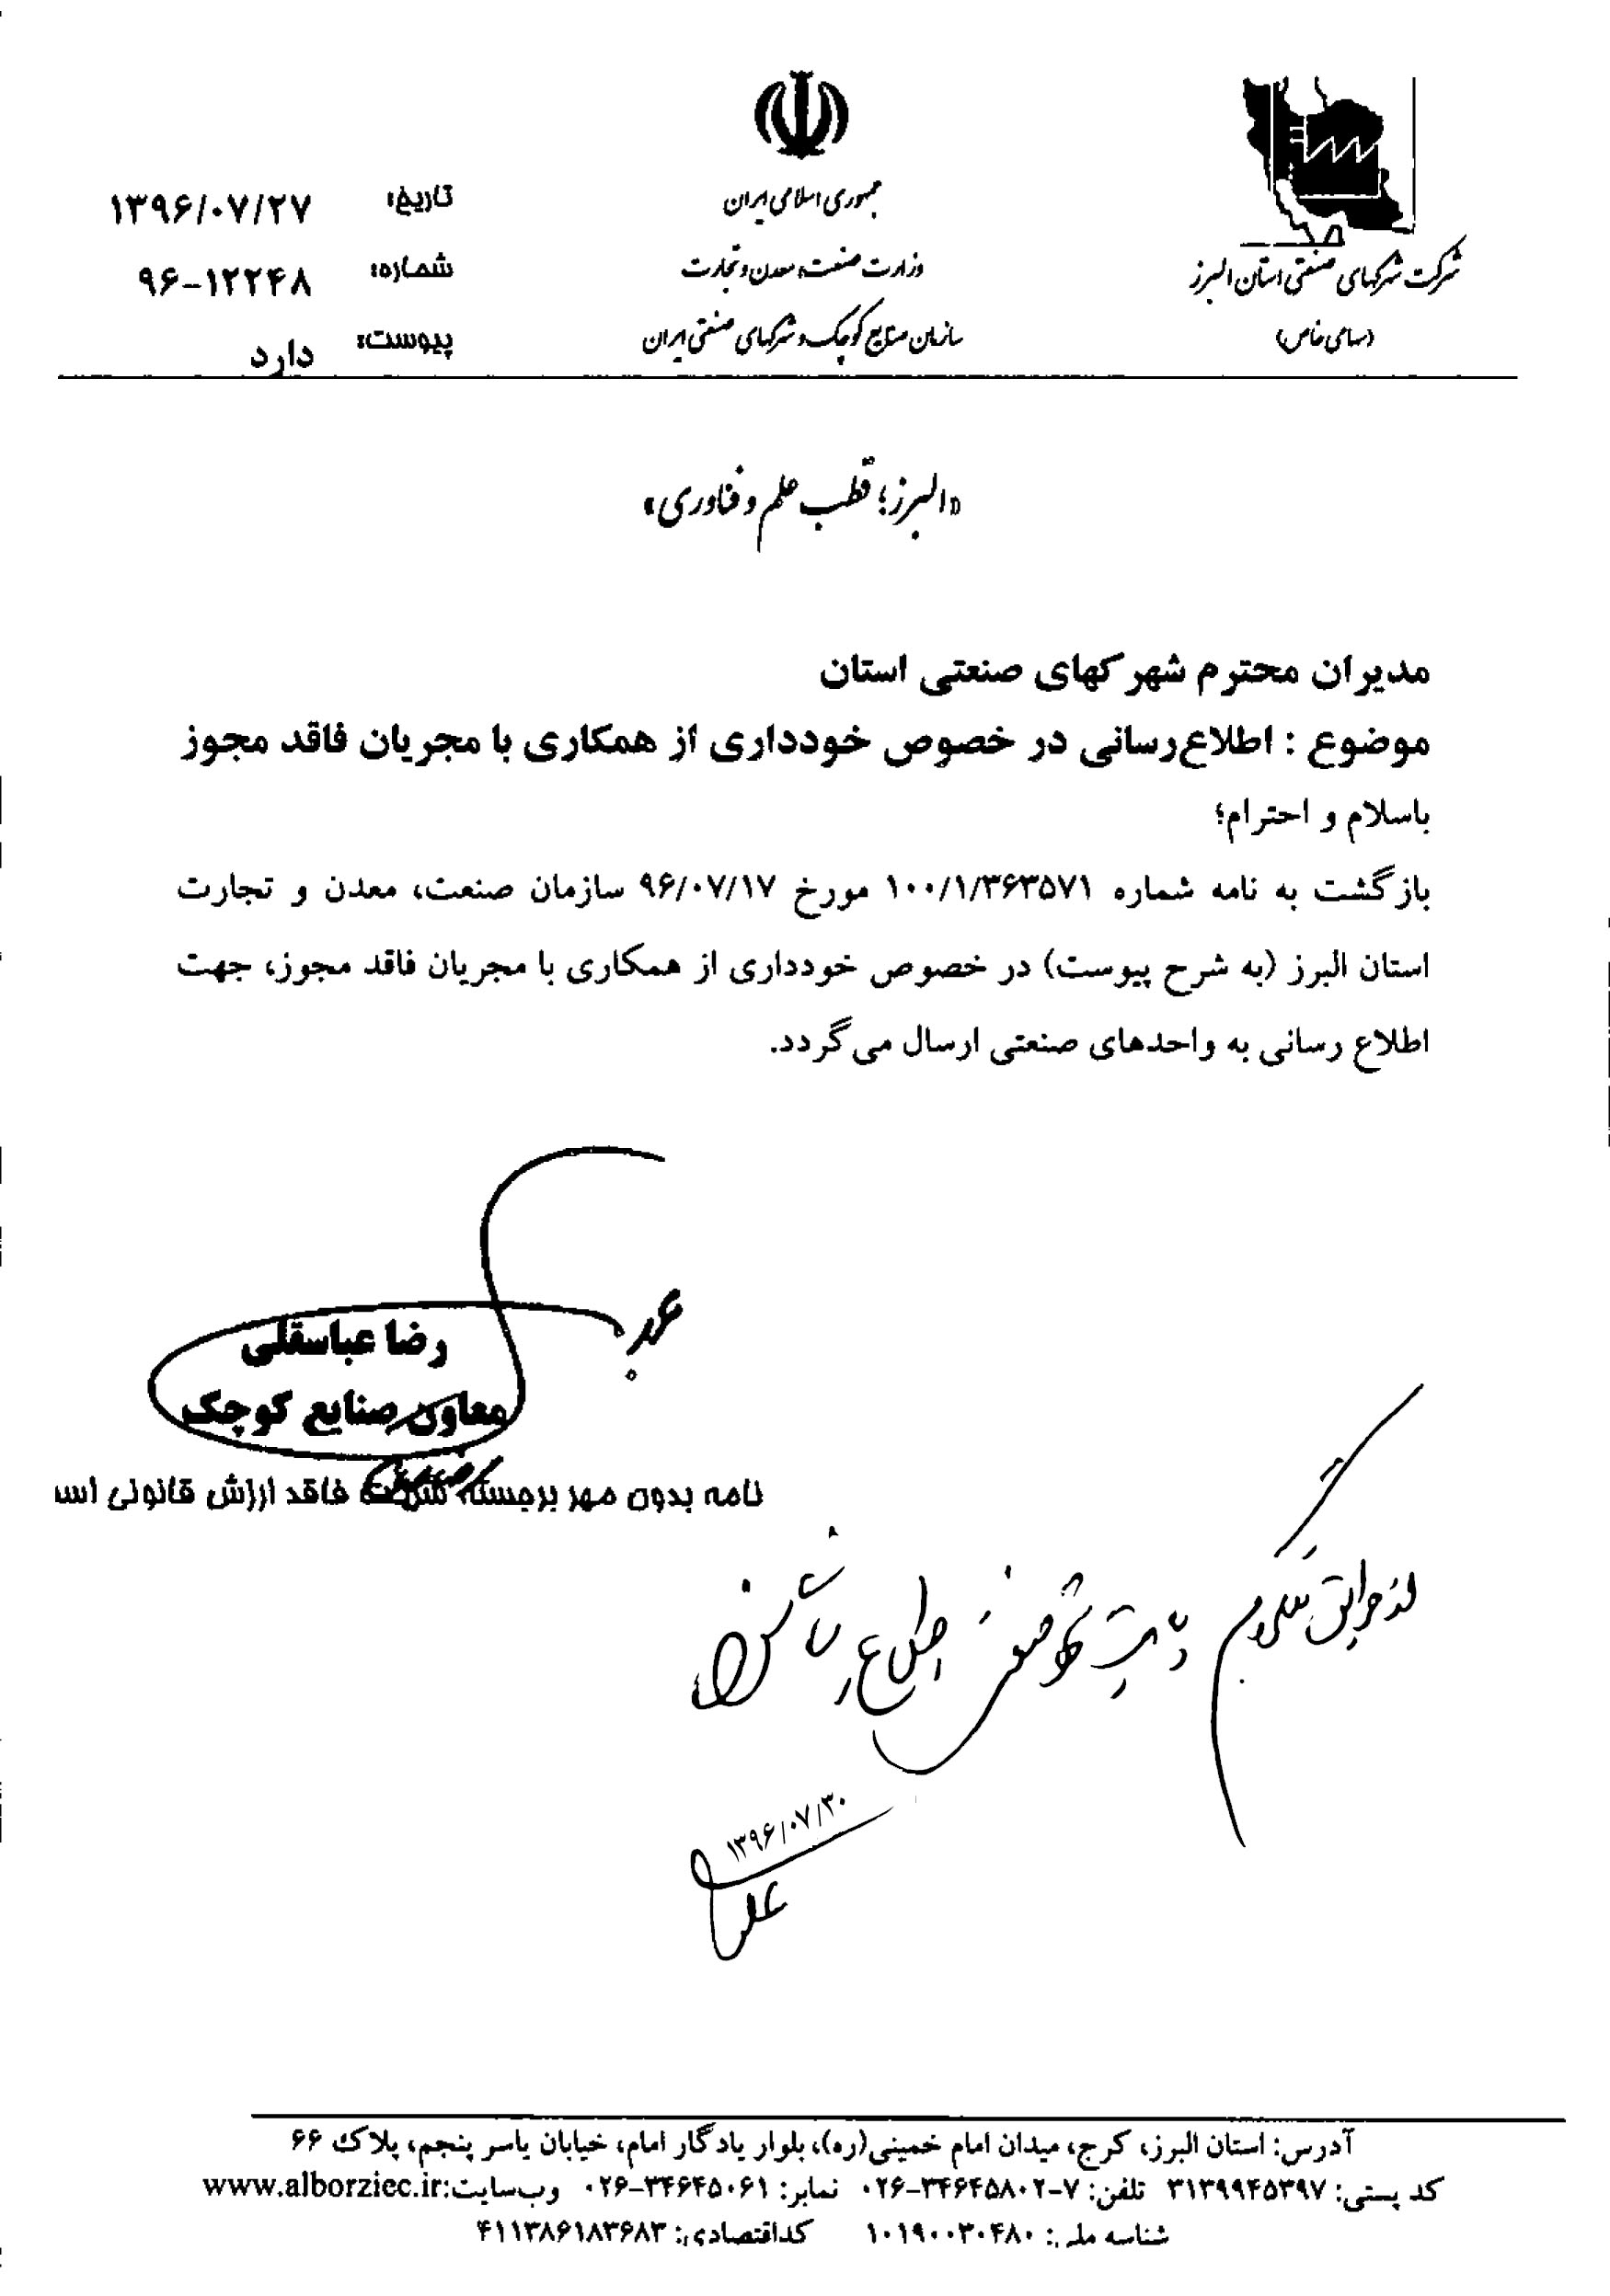 شرکت شهرکهای صنعتی استان البرز
(سهامی خاص)
جمهوری اسلامی ایران
وزارت صنعت، معدن و تجارت
سازمان صنایع کوچک و شهرکهای صنعتی ایران
تاریخ: ۱۳۹۶/۰۷/۲۷
شماره: ۹۶-۱۲۲۴۸
پیوست: دارد
«البرز؛ قطب علم و فناوری»
مدیران محترم شهرکهای صنعتی استان
موضوع : اطلاع‌رسانی در خصوص خودداری از همکاری با مجریان فاقد مجوز
باسلام و احترام؛
بازگشت به نامه شماره ۱۰۰/۱/۳۶۳۵۷۱ مورخ ۹۶/۰۷/۱۷ سازمان صنعت، معدن و تجارت
استان البرز (به شرح پیوست) در خصوص خودداری از همکاری با مجریان فاقد مجوز، جهت
اطلاع رسانی به واحدهای صنعتی ارسال می‌گردد.
رضا عباسقلی
معاون صنایع کوچک
نامه بدون مهر برجسته شرکت فاقد ارزش قانونی اس
اطلاع رسانی
۱۳۹۶/۰۷/۳۰
آدرس: استان البرز، کرج، میدان امام خمینی(ره)، بلوار یادگار امام، خیابان یاسر پنجم، پلاک ۶۶
کد پستی: ۳۱۳۹۹۴۵۳۹۷ تلفن: ۷-۰۲۶-۳۴۶۴۵۸۰۲ نمابر: ۰۲۶-۳۴۶۴۵۰۶۱ وب‌سایت:www.alborziec.ir
شناسه ملی: ۱۰۱۹۰۰۳۰۴۸۰ کداقتصادی: ۴۱۱۳۸۶۱۸۳۶۸۳